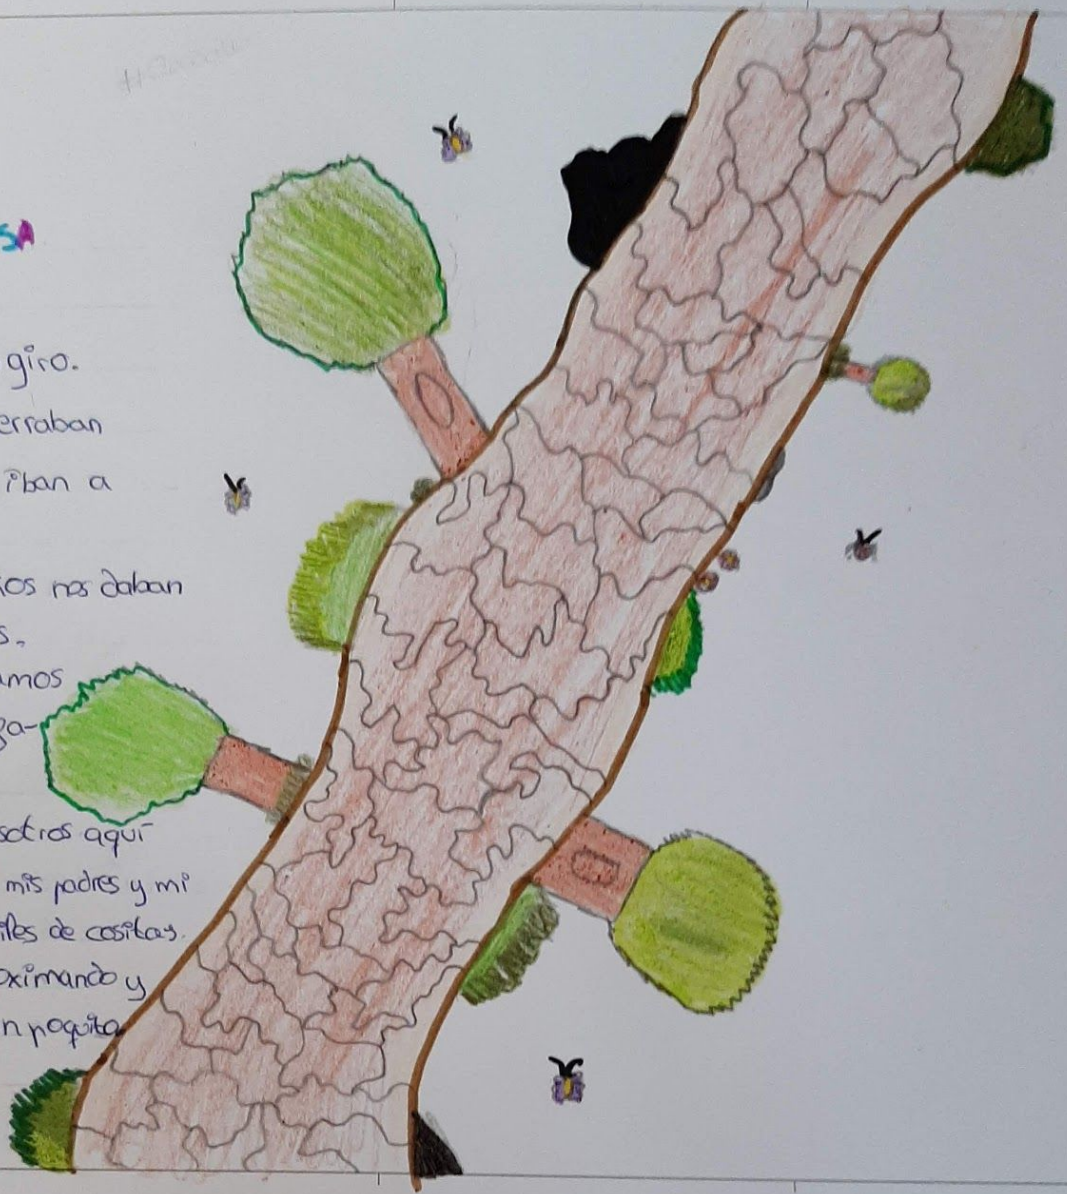 SA
giro.
erraban
iban a
ios nos daban
s,
amos
ga-
sotros aquí
mis padres y mi
iles de cositas.
oximando y
n poquito